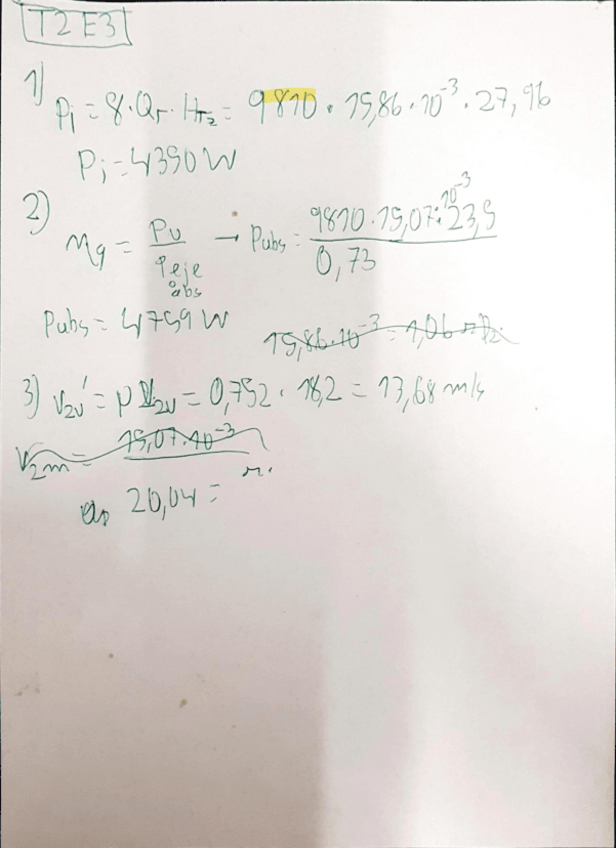 T2 E3
1)
Pi = γ·Qr·Hrz = 9810 · 15,86·10⁻³ · 27,96
Pi = 4350 W
2)
ηg = Pu / Peje abs → Pabs = 9810·15,07·10⁻³·23,5 / 0,73
Pabs = 4759 W
15,86·10⁻³ = 1,06
3) V2u' = μ V2u = 0,752 · 18,2 = 13,68 m/s
V2m = 15,07·10⁻³
20,04 =